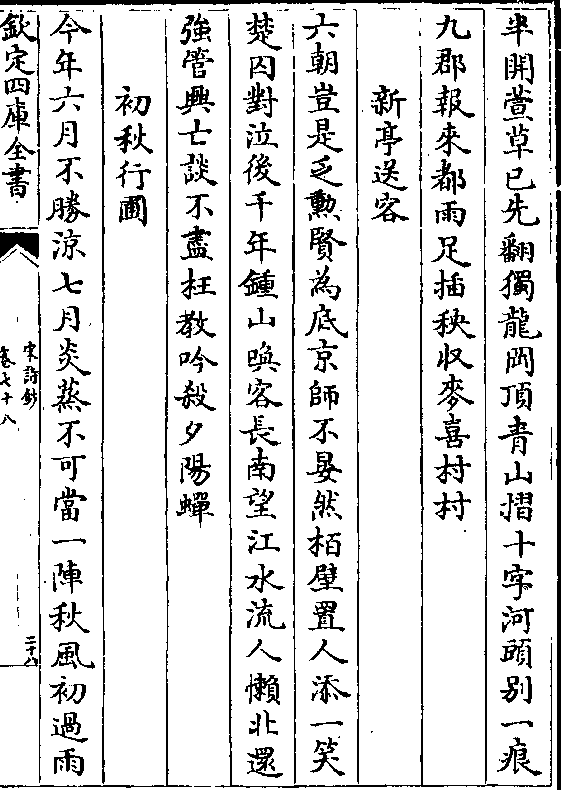 半開萱草已先翻獨龍岡頂青山摺十字河頭别一痕
九郡報來都雨足插秧収麥喜村村
新亭送客
六朝豈是乏勲賢為底京師不晏然栢壁置人添一笑
楚囚對泣後千年鍾山喚客長南望江水流人懶北還
強管興亡談不盡枉教吟殺夕陽蟬
初秋行圃
今年六月不勝涼七月炎蒸不可當一陣秋風初過雨
欽定四庫全書
宋詩鈔
卷七十八
二十八